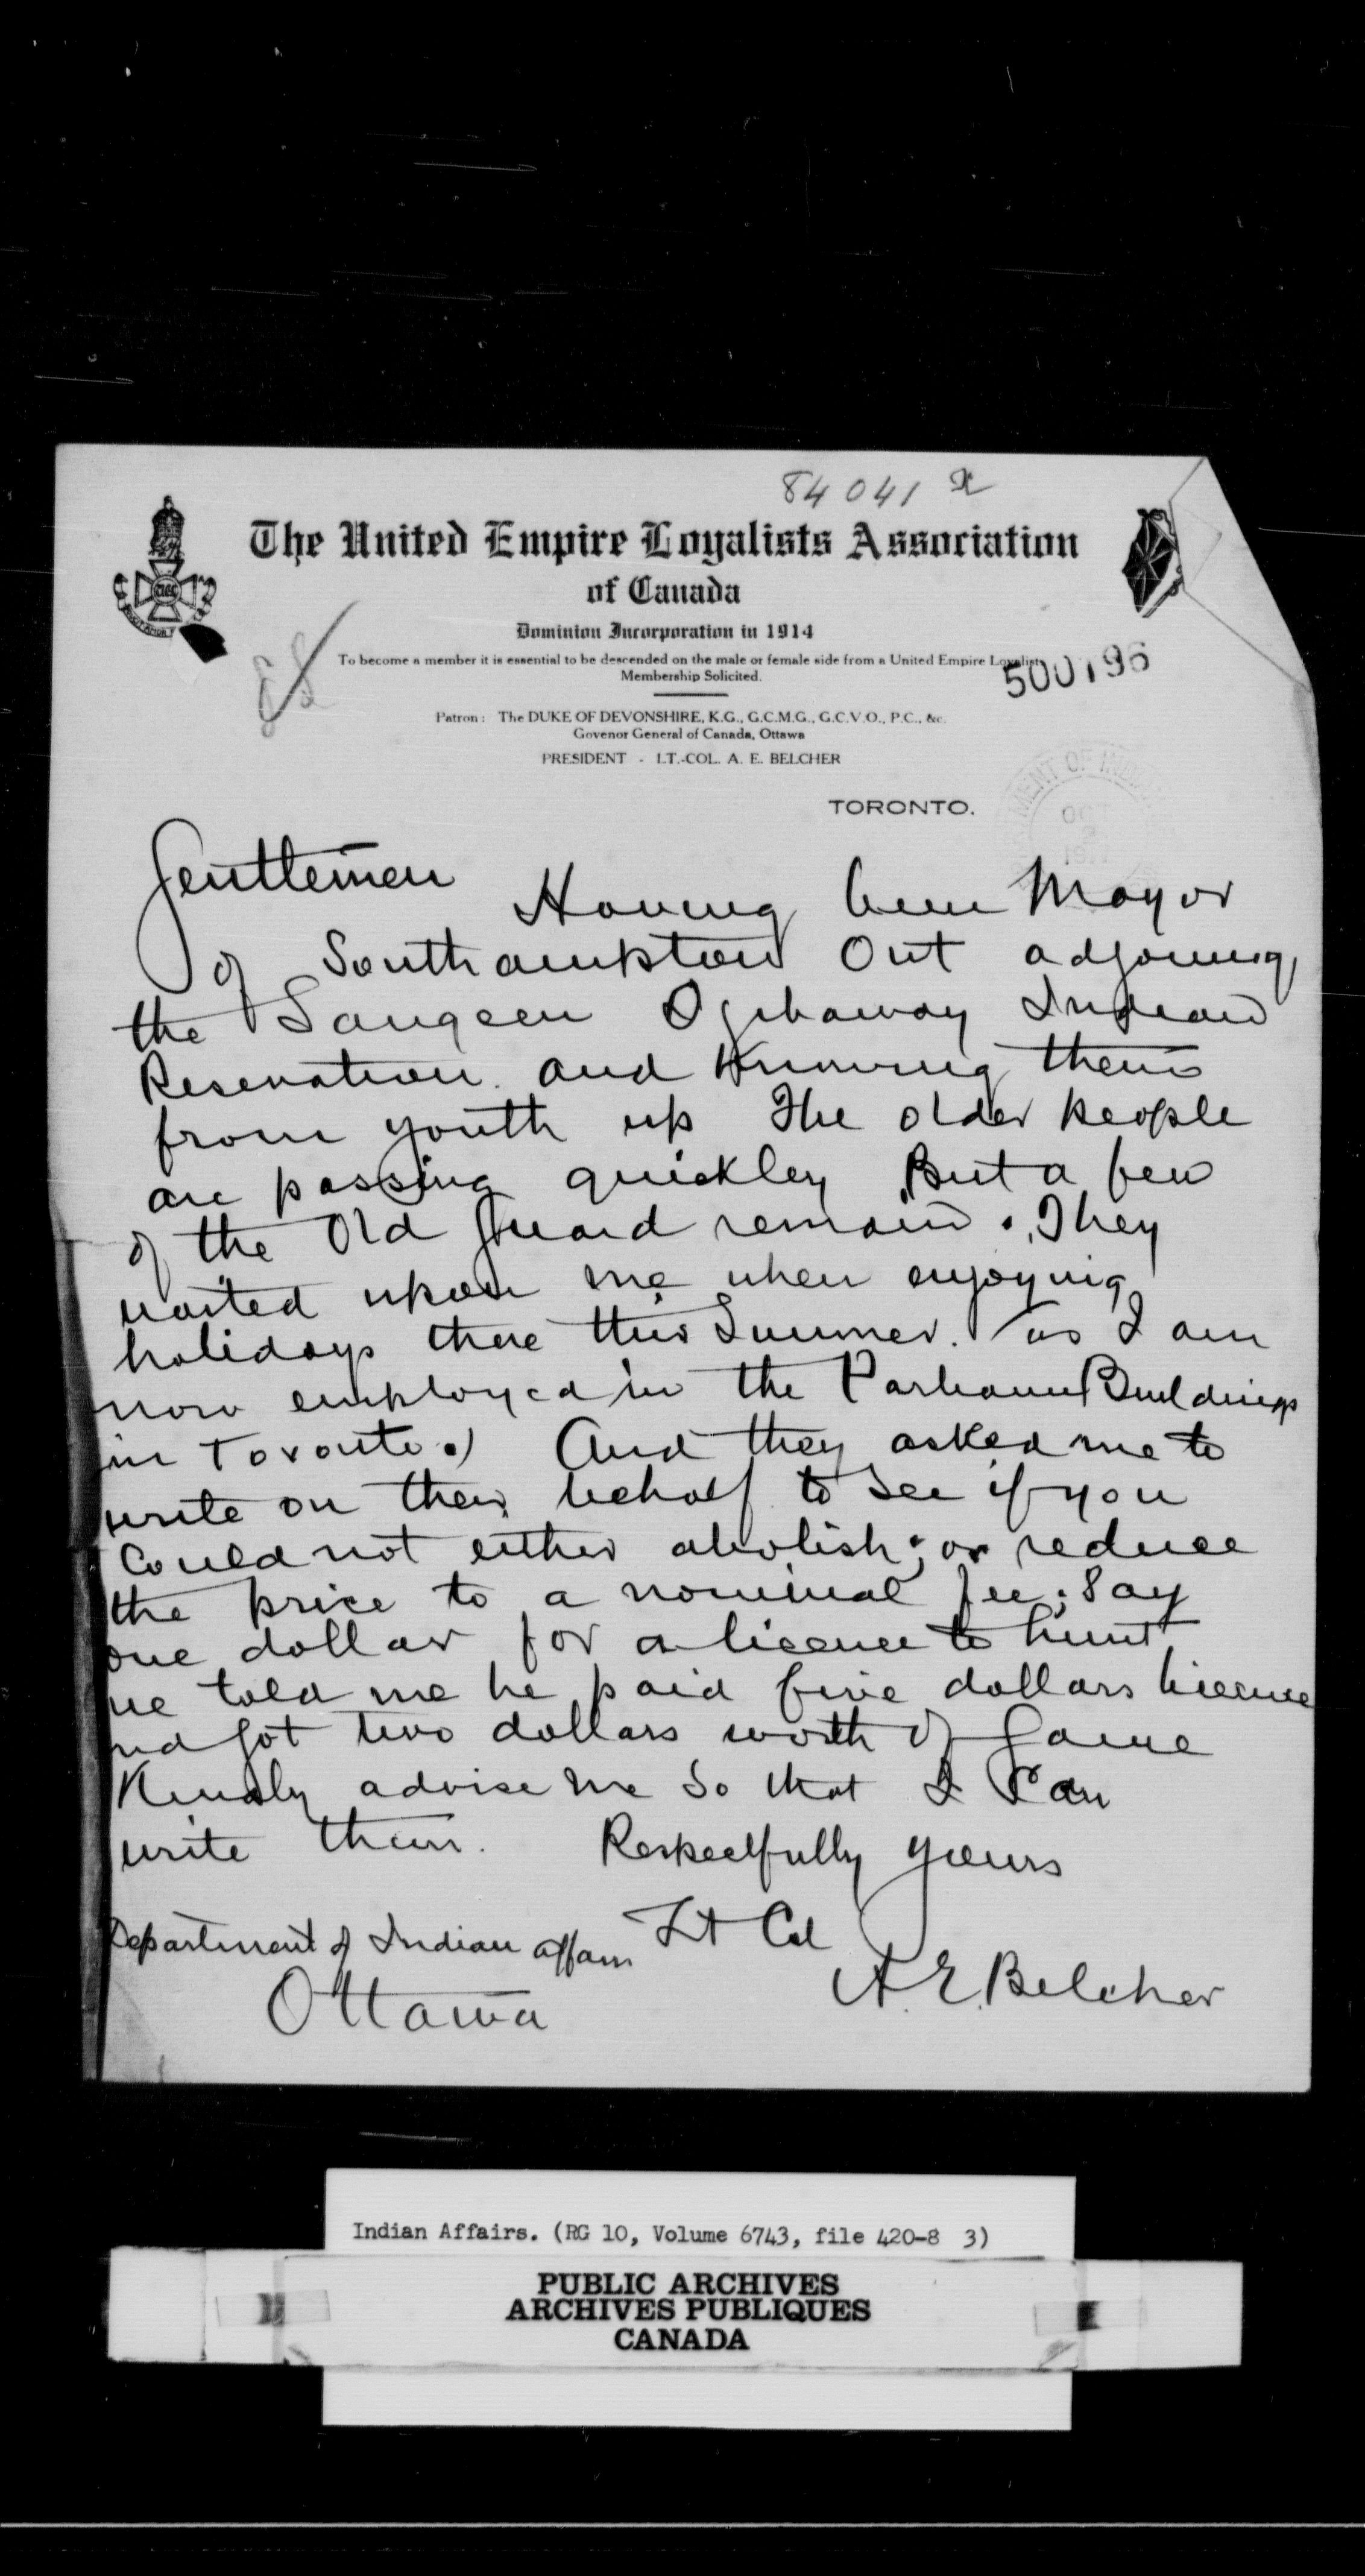 84041
The United Empire Loyalists Association
of Canada
Dominion Incorporation in 1914
To become a member it is essential to be descended on the male or female side from a United Empire Loyalist.
Membership Solicited.
500196
Patron: The DUKE OF DEVONSHIRE, K.G., G.C.M.G., G.C.V.O., P.C., &c.
Govenor General of Canada, Ottawa
PRESIDENT - LT.-COL. A. E. BELCHER
TORONTO.
Gentlemen
Having been Mayor
of Southampton Ont adjoining
the Saugeen Ojibaway Indian
Reservation. and Knowing them
from youth up The older people
are passing quickley But a few
of the Old Guard remain. They
waited upon me when enjoying
holidays there this Summer. as I am
now employed in the Parliament Buildings
in Toronto.) And they asked me to
write on their behalf to see if you
Could not either abolish; or reduce
the price to a nominal fee; Say
one dollar for a licence to hunt
me told me he paid five dollars licence
and got two dollars worth of Game
Kindly advise me So that I Can
write them. Respectfully yours
Department of Indian affairs Lt Col
Ottawa A. E. Belcher
Indian Affairs. (RG 10, Volume 6743, file 420-8 3)
PUBLIC ARCHIVES
ARCHIVES PUBLIQUES
CANADA